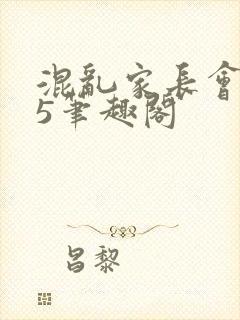 混亂家長會
5筆趣閣
昌黎